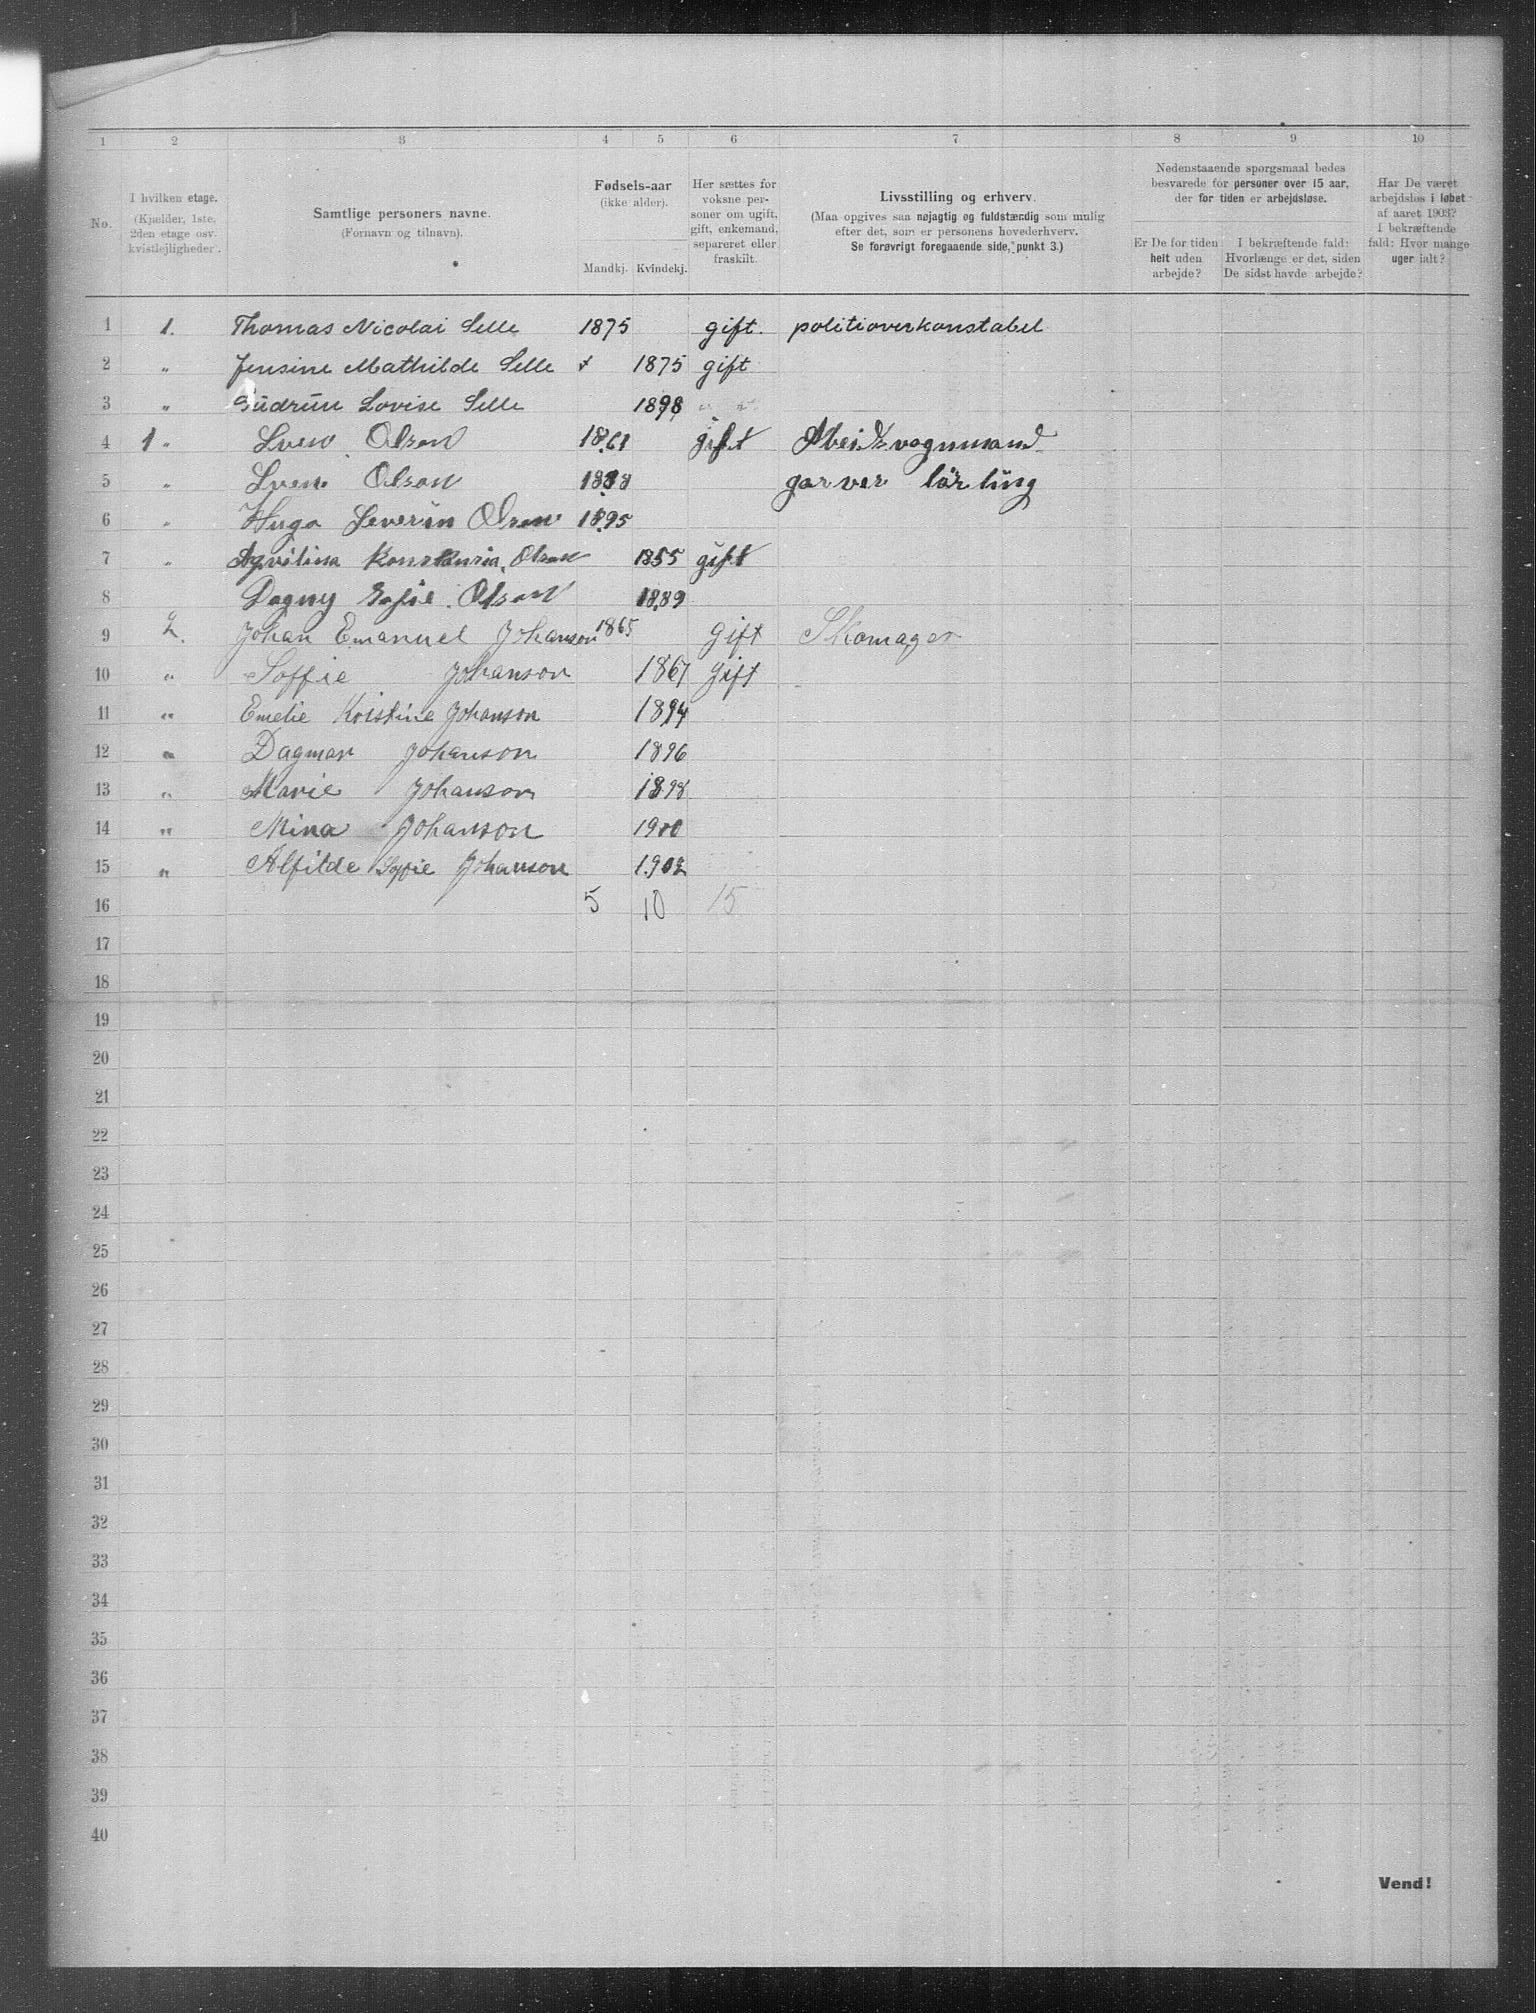 1 2 3 4 5 6 7 8 9 10
No. I hvilken etage. (Kjælder, 1ste, 2den etage osv. kvistlejligheder). Samtlige personers navne. (Fornavn og tilnavn). Fødsels-aar (ikke alder). Mandkj. Kvindekj. Her sættes for voksne personer om ugift, gift, enkemand, separeret eller fraskilt. Livsstilling og erhverv. (Maa opgives saa nøjagtig og fuldstændig som mulig efter det, som er personens hovederhverv. Se forøvrigt foregaaende side, punkt 3.) Nedenstaaende spørgsmaal bedes besvarede for personer over 15 aar, der for tiden er arbejdsløse. Er De for tiden helt uden arbejde? I bekræftende fald: Hvorlænge er det, siden De sidst havde arbejde? Har De været arbejdsløs i løbet af aaret 1903? I bekræftende fald: Hvor mange uger ialt?
1 1. Thomas Nicolai Selle 1875 gift. politioverkonstabel
2 " Jensine Mathilde Selle + 1875 gift
3 " Gudrun Lovise Selle 1898
4 1 " Sven Olson 1861 gift
5 " Sven Olson garver lärling
6 " Hugo Severin Olsen 1895
7 " Olson 1855 gift
8 Dagny Sofie Olson 1889
9 2. Johan Emanuel Johanson 1865 Gift Skomager
10 " Soffie Johanson 1867 gift
11 " Emelie Kristine Johanson 1894
12 " Dagmar Johanson 1896
13 " Marie Johanson 1898
14 " Mina Johanson 1900
15 " Alfilde Sofie Johanson 1902
16 5 10 15
17
18
19
20
21
22
23
24
25
26
27
28
29
30
31
32
33
34
35
36
37
38
39
40
Vend!